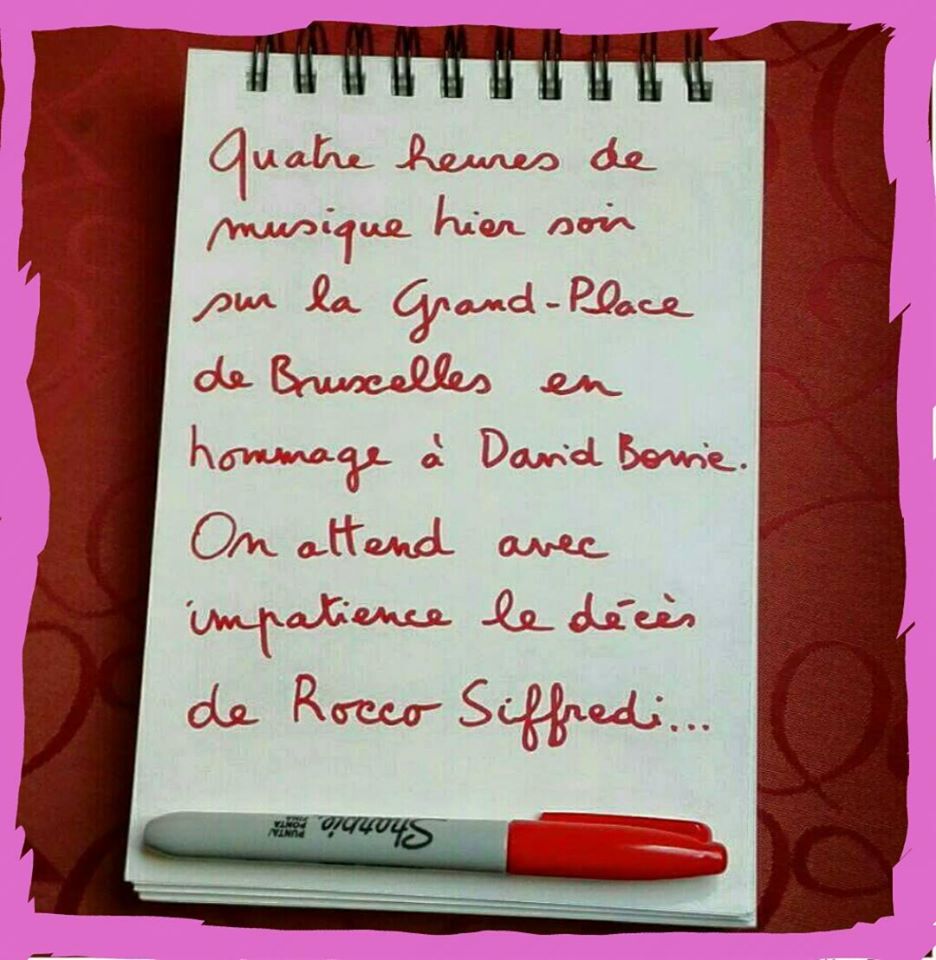 Quatre heures de
musique hier soir
sur la Grand-Place
de Bruxelles en
hommage à David Bowie.
On attend avec
impatience le décès
de Rocco Siffredi...
Sharpie
PUNTA/
PONTA
FINA